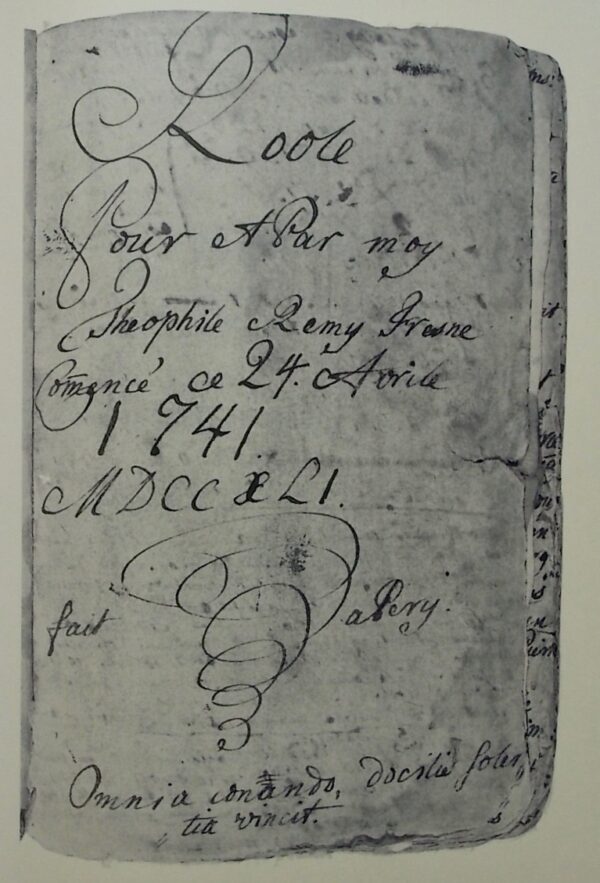 Roole
Pour et Par moy
Theophile Remy Fresne
Com̄encé ce 24. Avrile
1741.
MDCCXLI.
fait a Pery.
Omnia conando, docilis soler
tia vincit.